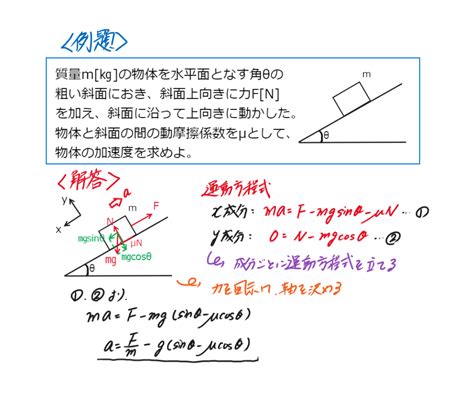 <例題!>
質量m[kg]の物体を水平面となす角θの
粗い斜面におき、斜面上向きに力F[N]
を加え、斜面に沿って上向きに動かした。
物体と斜面の間の動摩擦係数をμとして、
物体の加速度を求めよ。
m
θ
<解答>
a
y
x
m
F
N
mgsinθ
μN
mg
mgcosθ
θ
運動方程式
x成分: ma=F-mgsinθ-μN …①
y成分: 0=N-mgcosθ …②
成分ごとに運動方程式を立てる
力を図示し、軸を決める
①,②より,
ma=F-mg(sinθ-μcosθ)
a=F/m-g(sinθ-μcosθ)